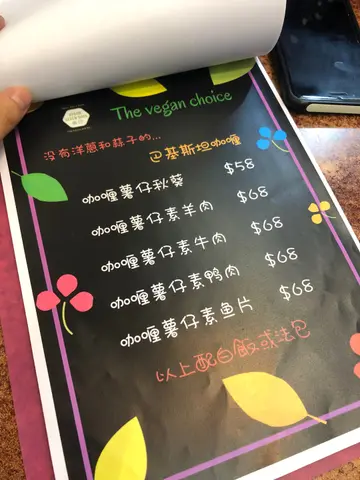 The vegan choice
没有洋蔥和蒜子的...
巴基斯坦咖喱
咖喱薯仔秋葵 $58
咖喱薯仔素羊肉 $68
咖喱薯仔素牛肉 $68
咖喱薯仔素鸭肉 $68
咖喱薯仔素鱼片 $68
以上配白飯或法包